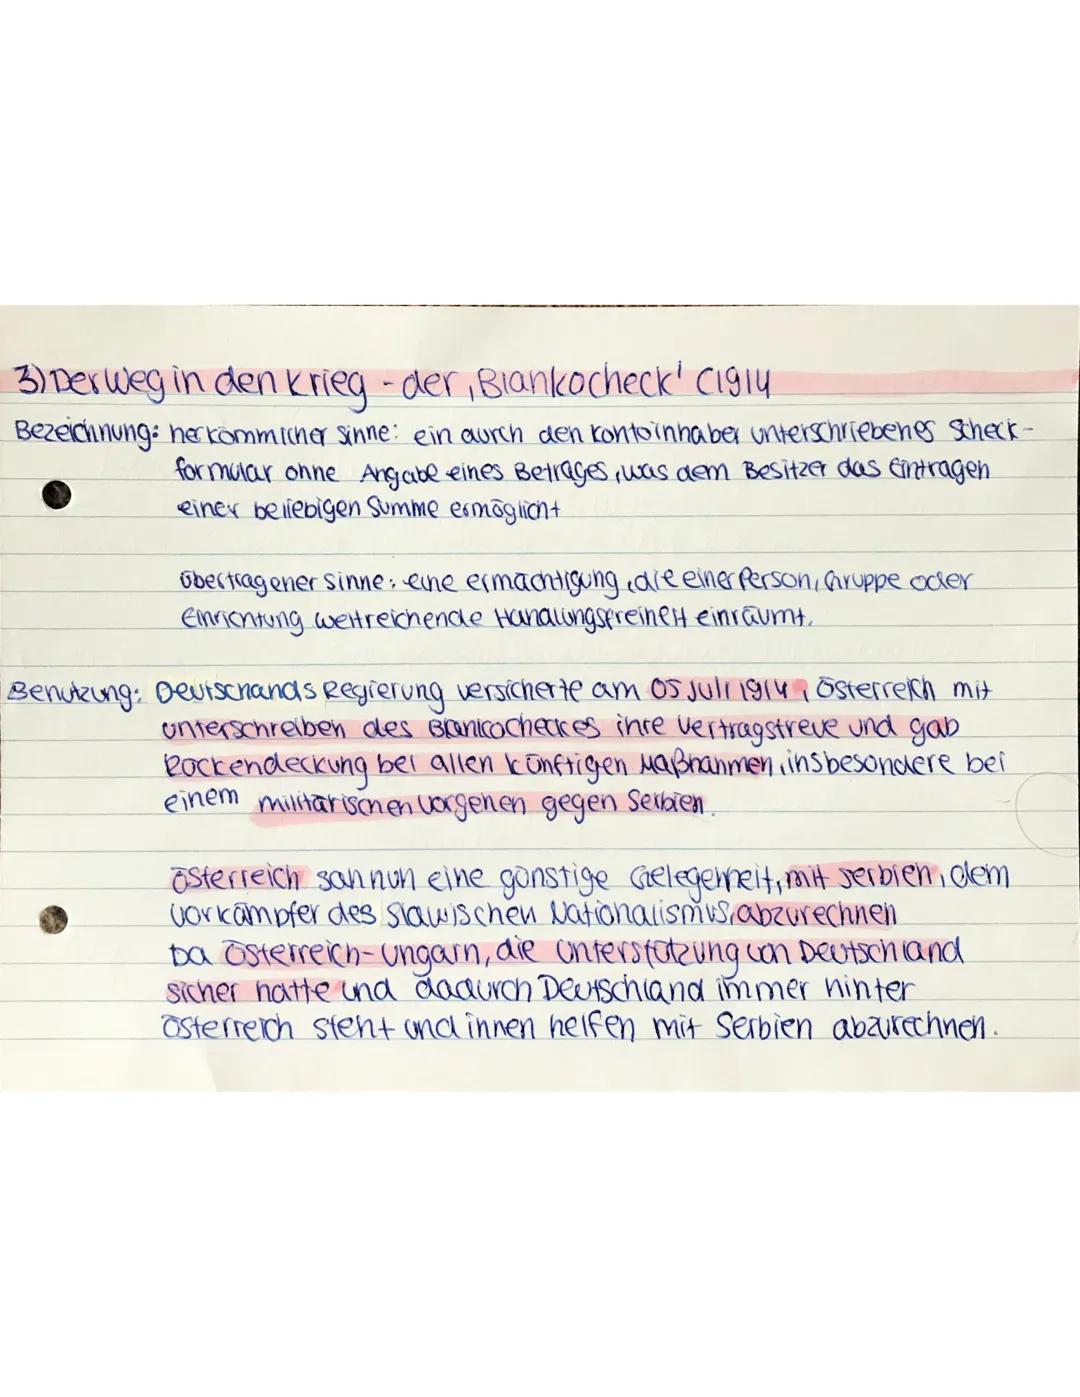 3) Der Weg in den Krieg - der ‚Blankocheck' (1914
Bezeichnung: herkömmlicher Sinne: ein durch den Kontoinhaber unterschriebenes Scheck-
formular ohne Angabe eines Betrages, was dem Besitzer das Eintragen
einer beliebigen Summe ermöglicht
übertragener Sinne: eine ermächtigung, die einer Person, Gruppe oder
Einrichtung weitreichende Handlungsfreiheit einräumt.
Benutzung: Deutschands Regierung versicherte am 05 Juli 1914, Österreich mit
unterschreiben des Blankocheckes ihre Vertragstreue und gab
Rückendeckung bei allen künftigen Maßnahmen, insbesondere bei
einem militärischen Vorgehen gegen Serbien.
Österreich sah nun eine günstige Gelegenheit, mit Serbien, dem
Vorkämpfer des Slawischen Nationalismus, abzurechnen
Da Österreich-Ungarn, die Unterstützung von Deutschland
sicher hatte und dadurch Deutschland immer hinter
Österreich steht und ihnen helfen mit Serbien abzurechnen.